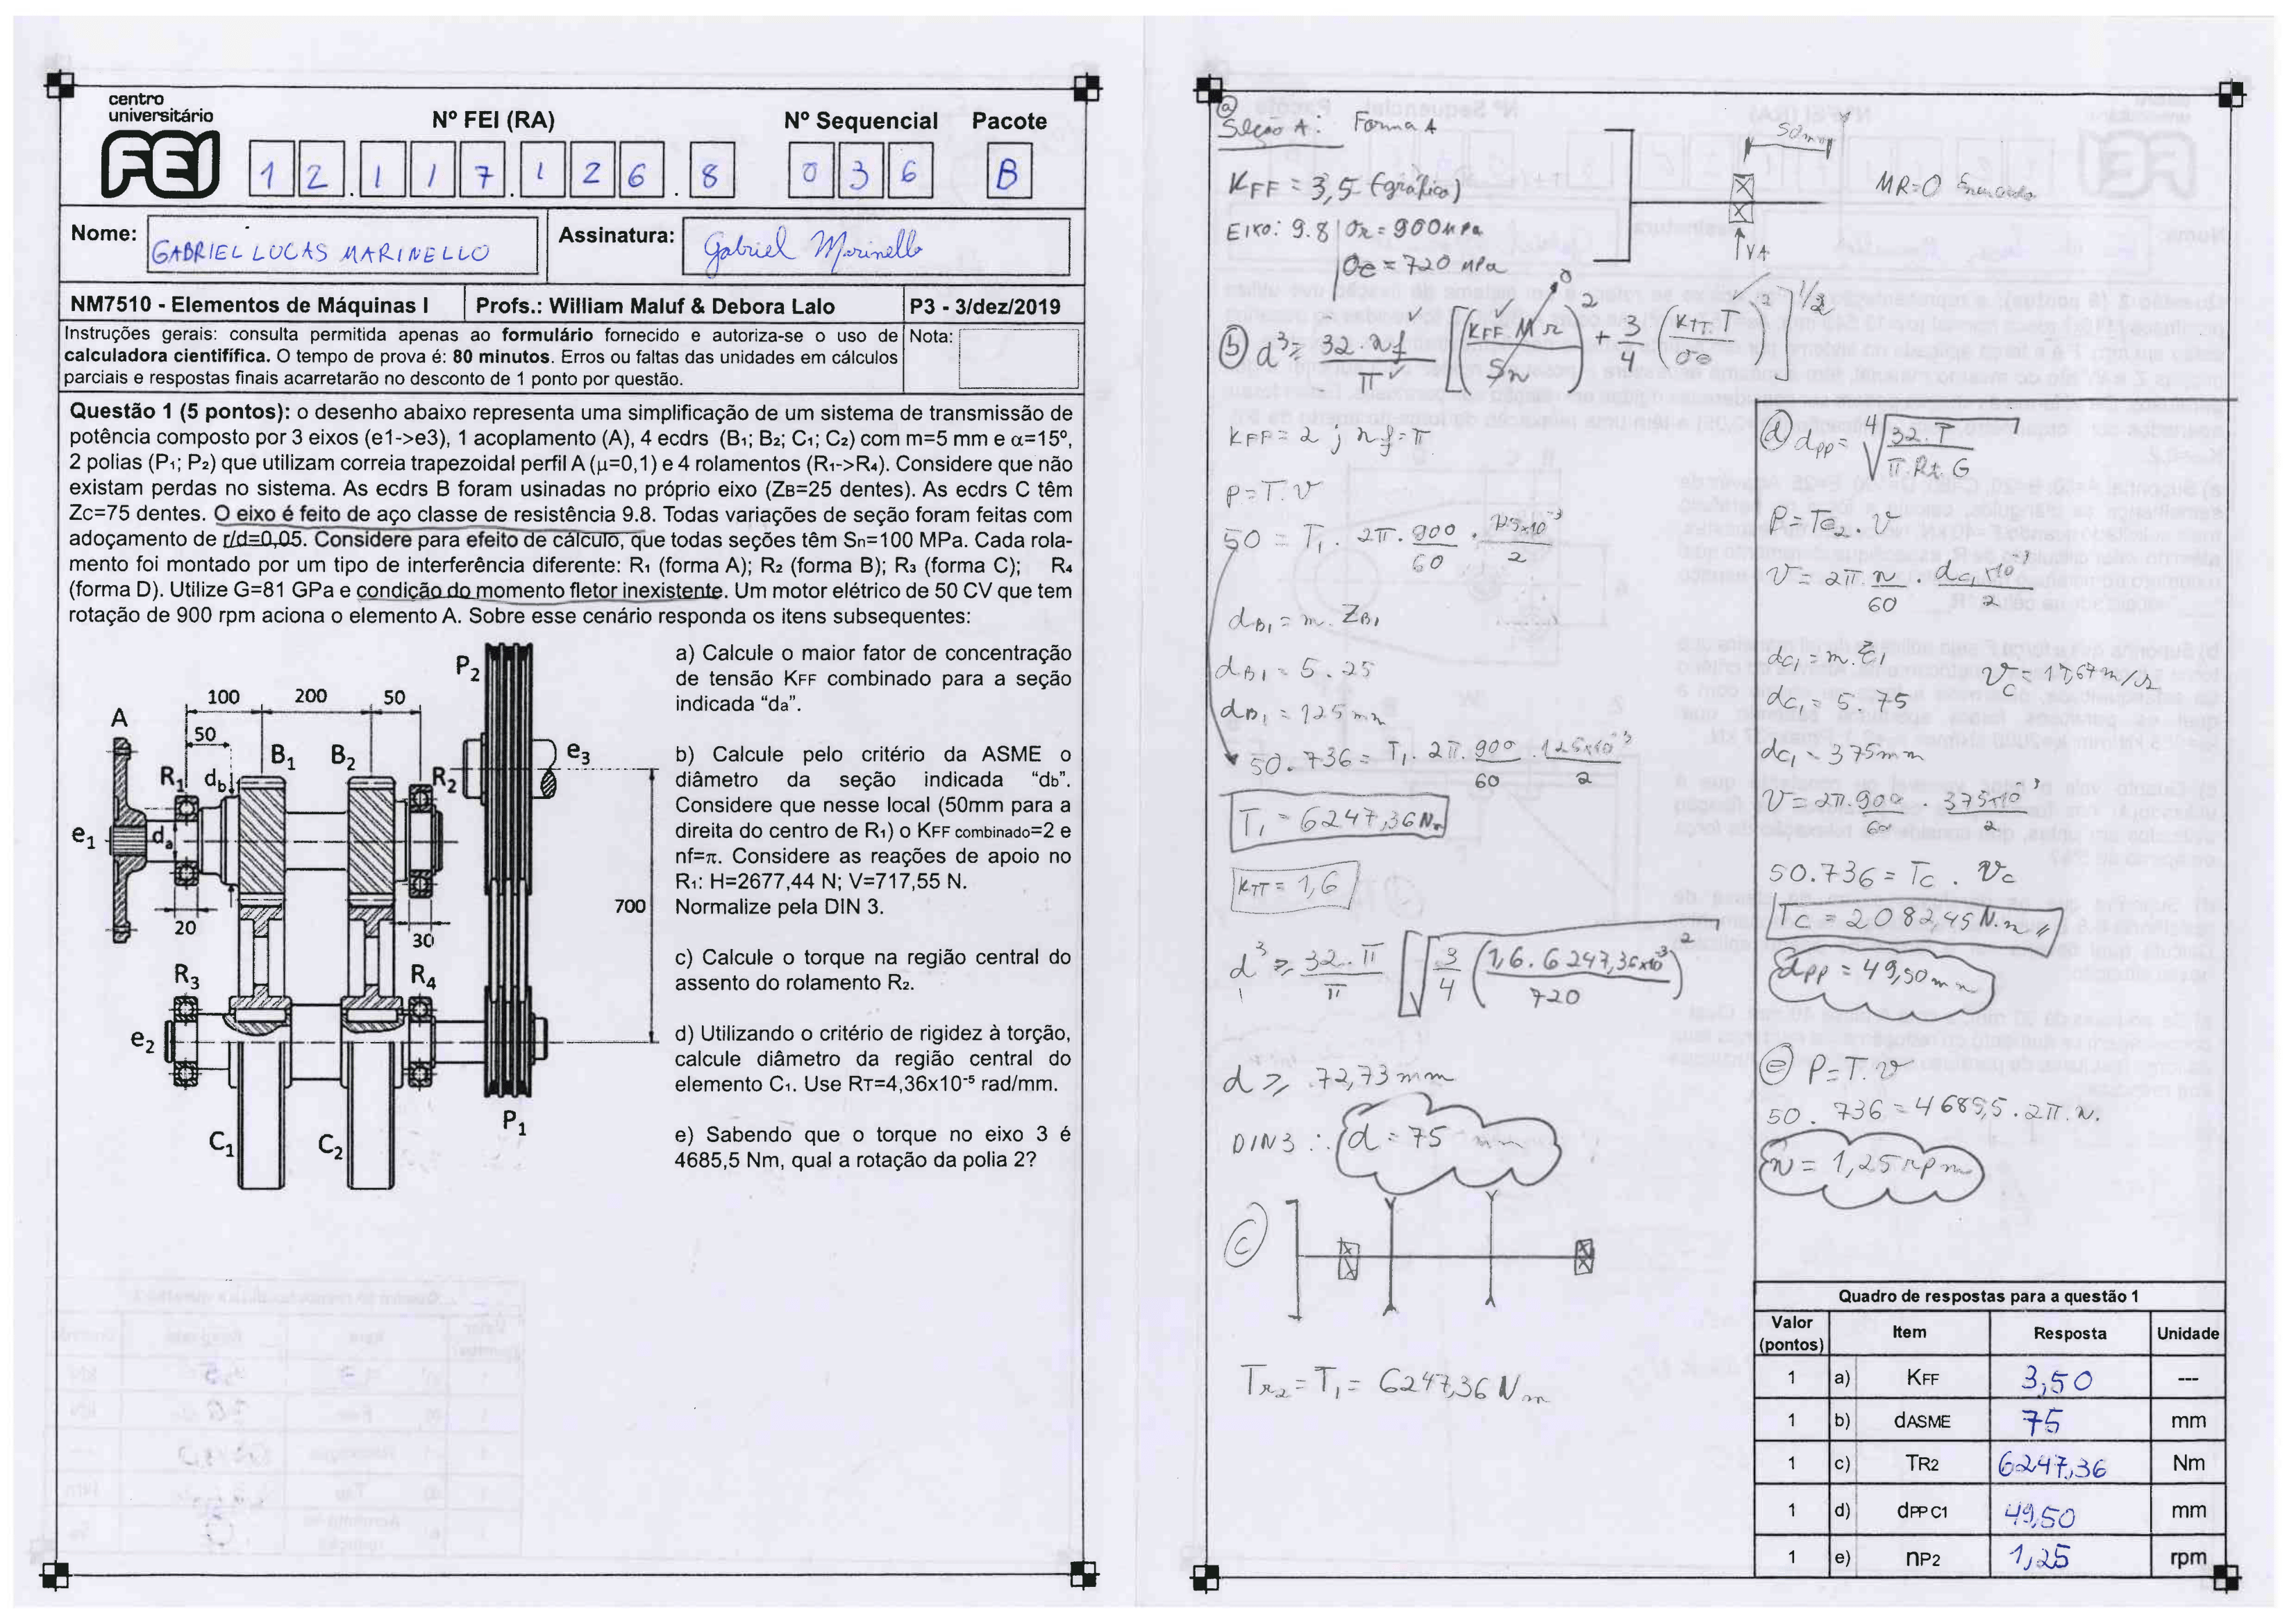 centro
universitário
FEI
Nº FEI (RA)
Nº Sequencial
Pacote
12.117.126.8
036
B
Nome:
GABRIEL LUCAS MARINELLO
Assinatura:
Gabriel Marinello
NM7510 - Elementos de Máquinas I
Profs.: William Maluf & Debora Lalo
P3 - 3/dez/2019
Instruções gerais: consulta permitida apenas ao formulário fornecido e autoriza-se o uso de
calculadora cientifífica. O tempo de prova é: 80 minutos. Erros ou faltas das unidades em cálculos
parciais e respostas finais acarretarão no desconto de 1 ponto por questão.
Nota:
Questão 1 (5 pontos): o desenho abaixo representa uma simplificação de um sistema de transmissão de
potência composto por 3 eixos (e1->e3), 1 acoplamento (A), 4 ecdrs (B1; B2; C1; C2) com m=5 mm e α=15º,
2 polias (P1; P2) que utilizam correia trapezoidal perfil A (μ=0,1) e 4 rolamentos (R1->R4). Considere que não
existam perdas no sistema. As ecdrs B foram usinadas no próprio eixo (ZB=25 dentes). As ecdrs C têm
Zc=75 dentes. O eixo é feito de aço classe de resistência 9.8. Todas variações de seção foram feitas com
adoçamento de r/d=0,05. Considere para efeito de cálculo, que todas seções têm Sn=100 MPa. Cada rola-
mento foi montado por um tipo de interferência diferente: R1 (forma A); R2 (forma B); R3 (forma C); R4
(forma D). Utilize G=81 GPa e condição do momento fletor inexistente. Um motor elétrico de 50 CV que tem
rotação de 900 rpm aciona o elemento A. Sobre esse cenário responda os itens subsequentes:
P2
100
200
50
A
50
B1
B2
R1
db
R2
e3
e1
da
700
20
30
R3
R4
e2
P1
C1
C2
a) Calcule o maior fator de concentração
de tensão KFF combinado para a seção
indicada “da”.
b) Calcule pelo critério da ASME o
diâmetro da seção indicada “db”.
Considere que nesse local (50mm para a
direita do centro de R1) o KFF combinado=2 e
nf=π. Considere as reações de apoio no
R1: H=2677,44 N; V=717,55 N.
Normalize pela DIN 3.
c) Calcule o torque na região central do
assento do rolamento R2.
d) Utilizando o critério de rigidez à torção,
calcule diâmetro da região central do
elemento C1. Use RT=4,36x10⁻⁵ rad/mm.
e) Sabendo que o torque no eixo 3 é
4685,5 Nm, qual a rotação da polia 2?
a
Seção A: Forma A
50mm
KFF = 3,5 (gráfico)
MR=0
Eixo: 9.8 | σr = 900MPa
σe = 720 MPa
VA
b d³ ≥ 32.nf/π [(KFF Mr/Sn)² + 3/4 (KTT. T/σe)²]^1/2
0
KFF = 2 ; nf = π
P=T.v
50 = T1 . 2π. 900/60 . 125x10⁻³/2
dB1 = m. ZB1
dB1 = 5 . 25
dB1 = 125mm
50.736 = T1. 2π. 900/60 . 125x10⁻³/2
T1 = 6247,36Nm
KTT = 1,6
d³ ≥ 32.π/π √3/4 (1,6. 6247,36x10³/720)²
d ≥ 72,73mm
DIN3 ∴ d = 75 mm
c
Tr2 = T1 = 6247,36 Nm
d dpp = ⁴√32.T/π.Rt.G
P = Te2 . v
v = 2π. n/60 . dc1x10⁻³/2
dc1 = m.Z1
vc = 17,67m/s
dc1 = 5.75
dc1 = 375mm
v = 2π.900/60 . 375x10⁻³/2
50.736 = Tc . vc
Tc = 2082,45 N.m
dpp = 49,50mm
e P=T.v
50 . 736 = 4685,5. 2π. n.
n = 1,25rpm
Quadro de respostas para a questão 1
Valor (pontos) Item Resposta Unidade
1 a) KFF 3,50 ---
1 b) dASME 75 mm
1 c) TR2 6247,36 Nm
1 d) dPP C1 49,50 mm
1 e) nP2 1,25 rpm